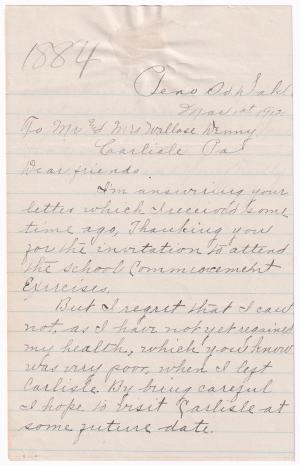 1884
Reno Okla
Mar 1st 1912
To Mr & Mrs Wallace Denny
Carlisle Pa
Dear friends.
I'm answering your
letter which I received some
time ago, Thanking you
for the invitation to attend
the school Commencement
Exercises.
But I regret that I can
not, as I have not yet regained
my health, which you know
was very poor, when I left
Carlisle. By being careful
I hope to visit Carlisle at
some future date.